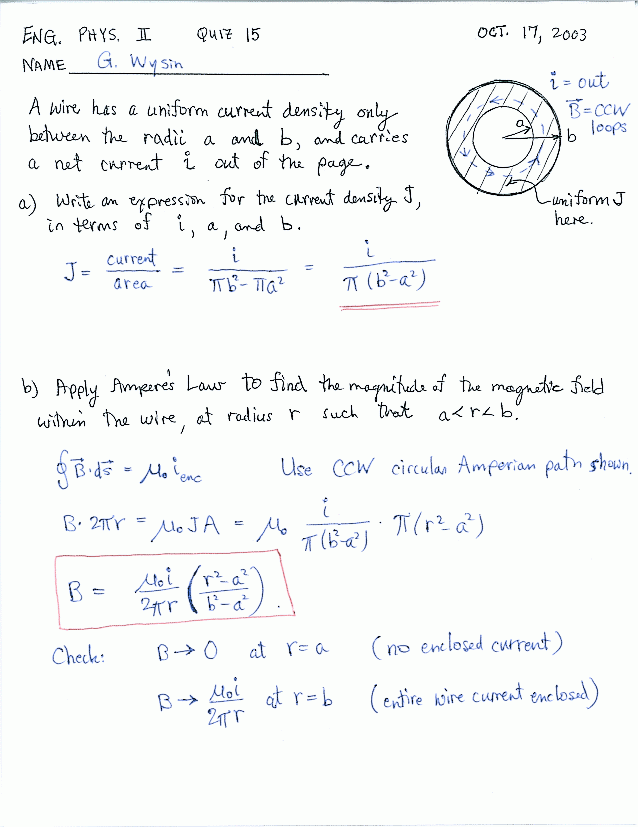 ENG. PHYS. II QUIZ 15 OCT. 17, 2003
NAME G. Wysin
A wire has a uniform current density only
between the radii a and b, and carries
a net current i out of the page.
i = out
B⃗ = CCW
loops
a
b
uniform J
here.
a) Write an expression for the current density J,
in terms of i, a, and b.
J = current/area = i/(πb² - πa²) = i/(π(b²-a²))
b) Apply Ampere's Law to find the magnitude of the magnetic field
within the wire, at radius r such that a<r<b.
∮B⃗·ds⃗ = μ₀ i_enc Use CCW circular Amperian path shown.
B·2πr = μ₀JA = μ₀ i/(π(b²-a²)) · π(r²-a²)
B = μ₀i/2πr ((r²-a²)/(b²-a²)).
Check: B→0 at r=a (no enclosed current)
B→ μ₀i/2πr at r=b (entire wire current enclosed)